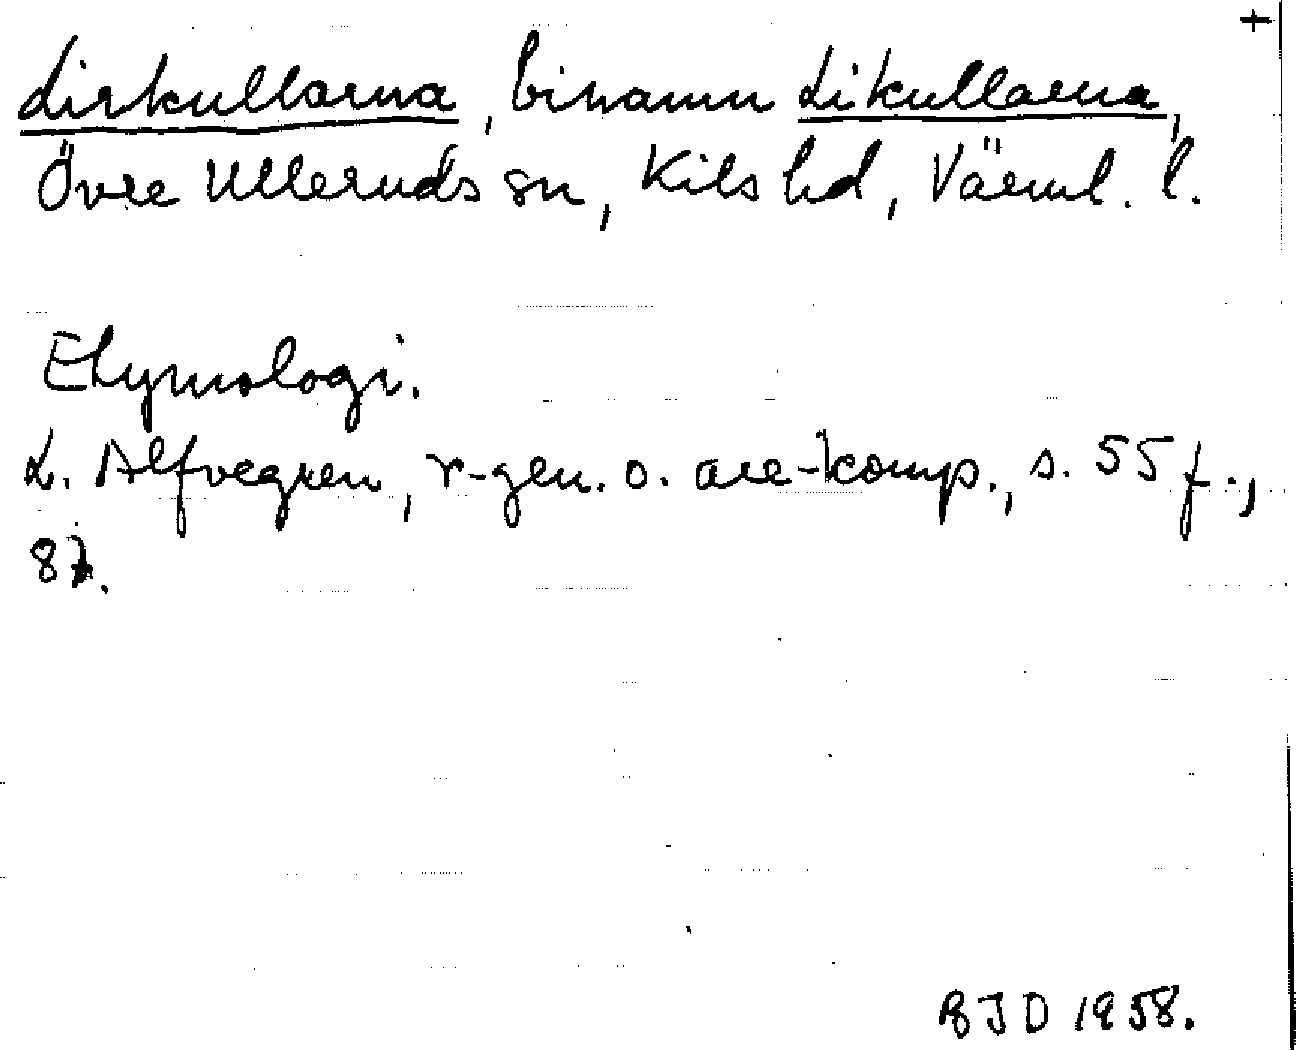 +
Lirkullarna, binamn Likullarna,
Övre Ulleruds sn, Kils hd, Värml. l.
Etymologi.
L. Alfvegren, r-gen. o. are-komp., s. 55 f.,
87.
BJD 1958.